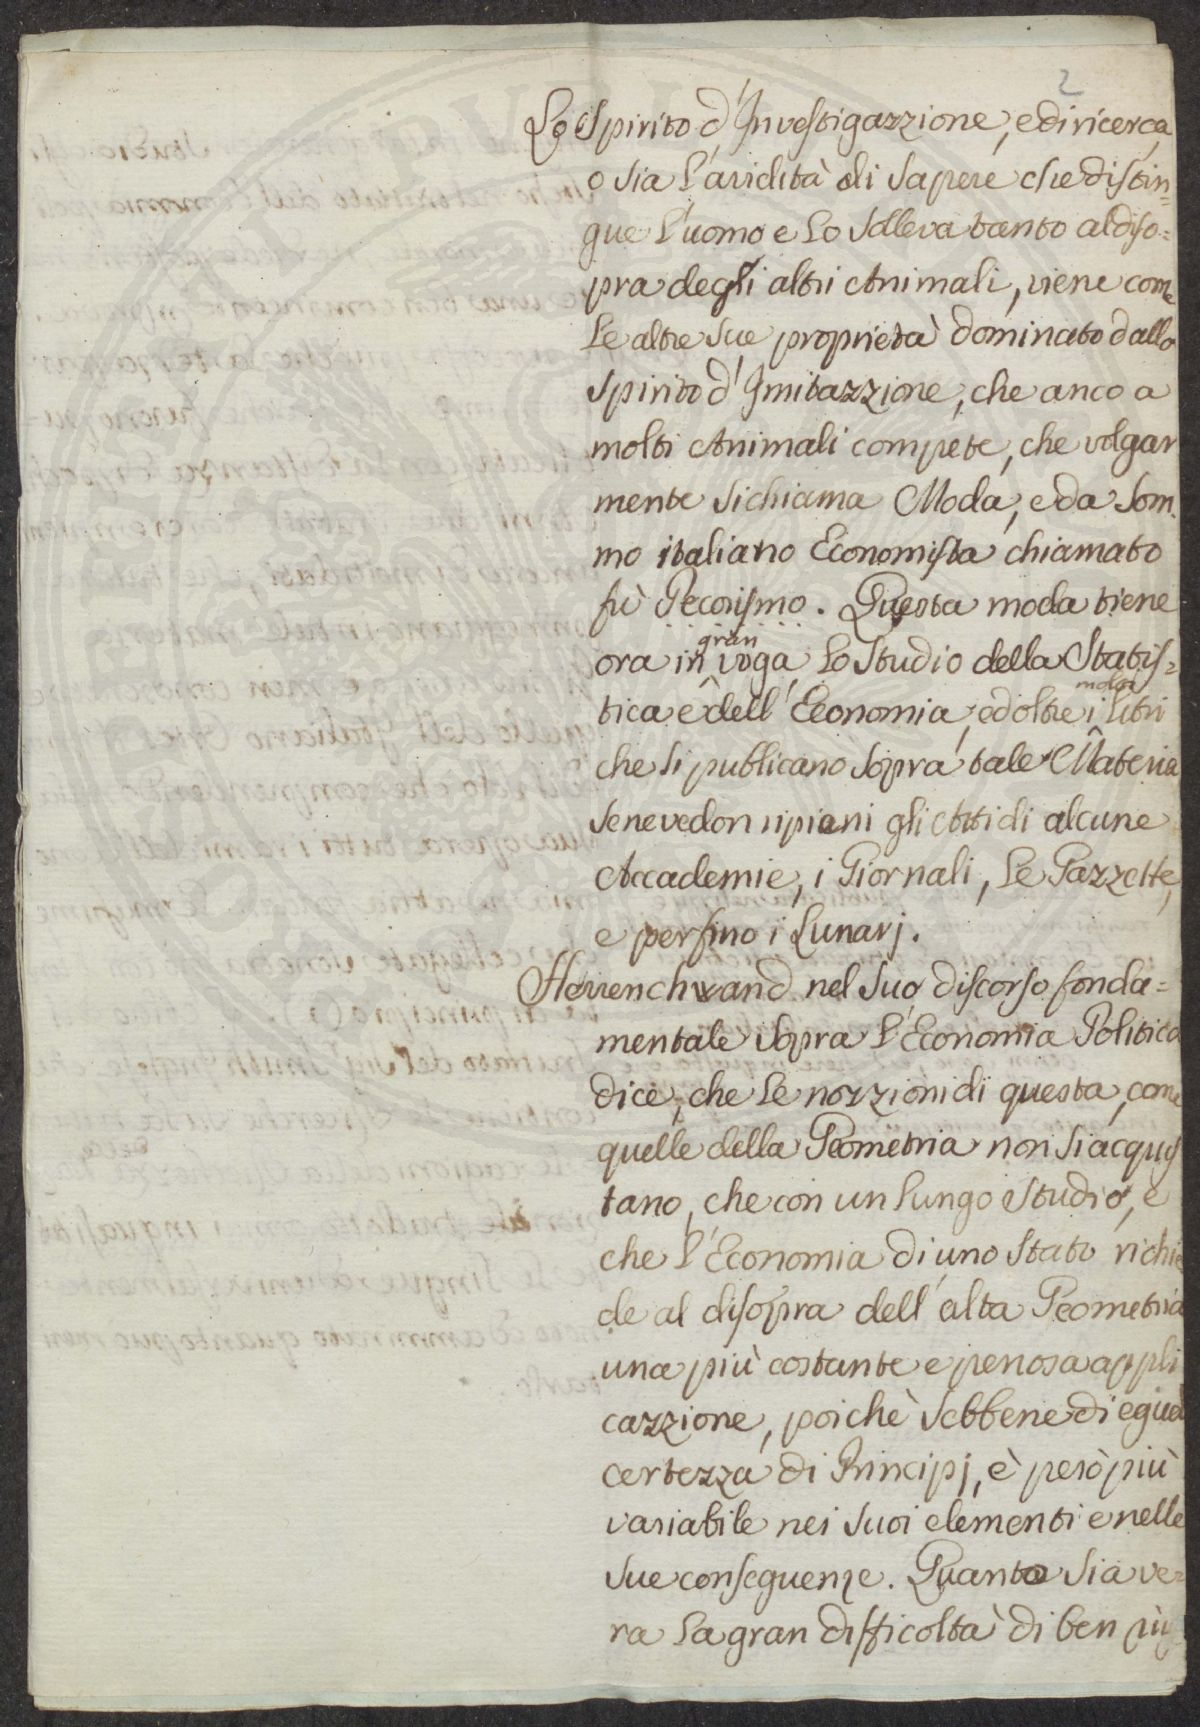 2
Lo Spirito d'Investigazzione, e di ricerca,
o sia l'avidità di sapere che distin=
gue l'uomo e lo solleva tanto al diso=
pra degli altri Animali, viene come
le altre sue proprietà dominato dallo
spirito d'Imitazzione, che anco a
molti Animali compete, che volgar
mente si chiama Moda, e da som.
mo italiano Economista chiamato
fù Pecorismo. Questa moda tiene
gran
ora in voga lo Studio della Statis=
molti
tica e dell'Economia, ed oltre i libri
che si publicano sopra tale Materia
se ne vedon ripieni gli Atti di alcune
Accademie, i Giornali, le Gazzette,
e perfino i Lunarj.
Herrenchwand nel suo discorso fonda=
mentale sopra l'Economia Politica
dice, che le nozzioni di questa, come
quelle della Geometria non si acquis
tano, che con un lungo studio, e
che l'Economia di uno Stato richie
de al disopra dell'alta Geometria
una più costante e penosa appli
cazzione, poichè sebbene di egual
certezza di Principj, è però più
variabile nei suoi elementi e nelle
sue conseguenze. Quanto sia ve=
ra la gran difficoltà di ben